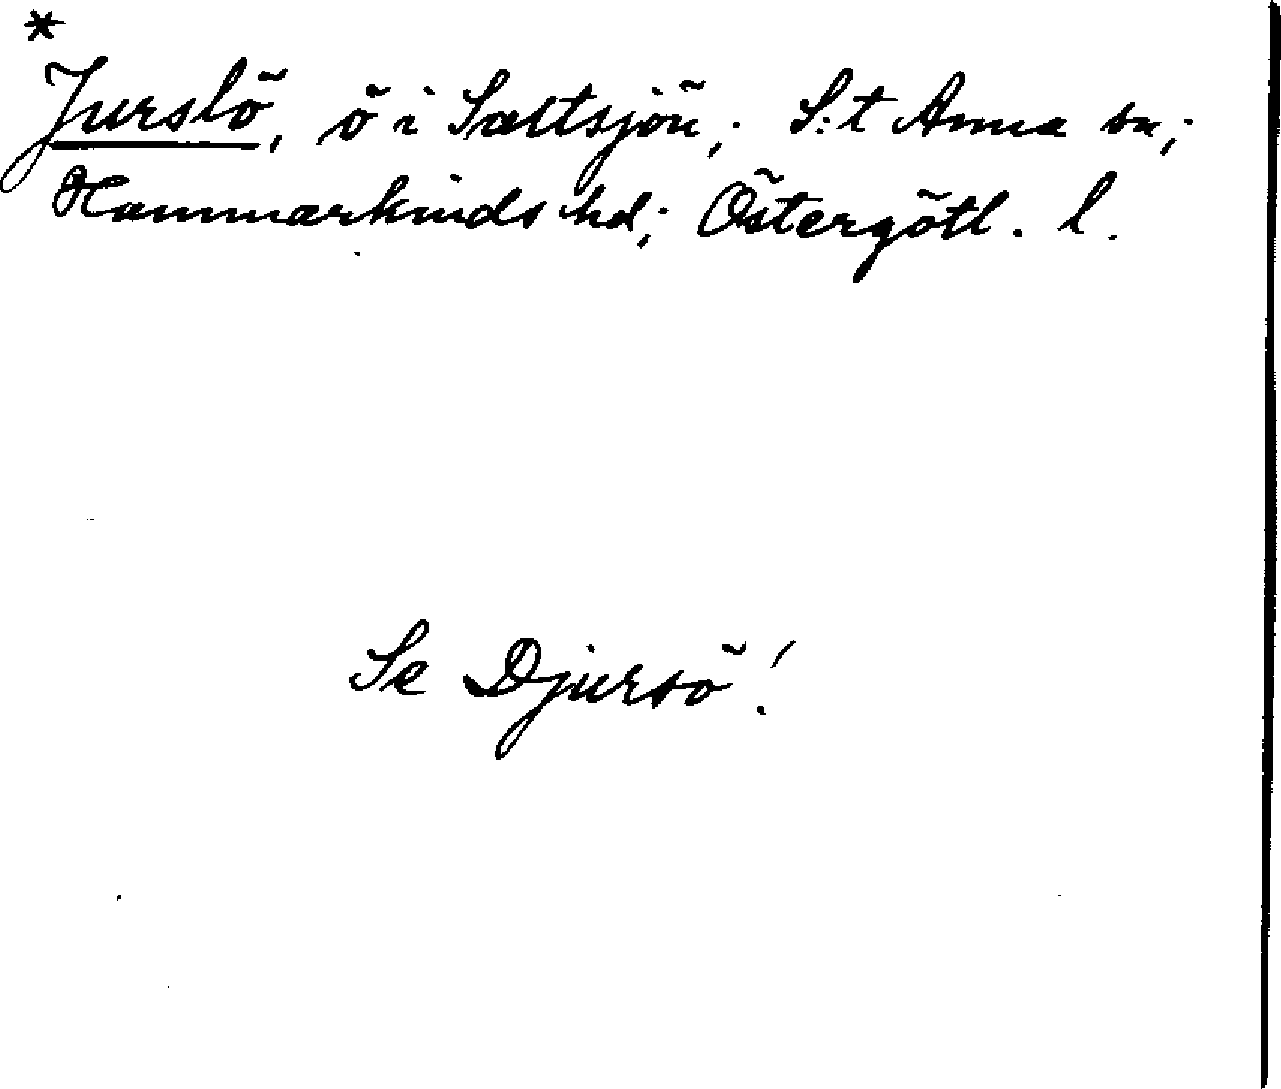 *
Jurslö, ö i Saltsjön; S:t Anna sn;
Hammarkinds hd; Östergötl. l.
Se Djursö!